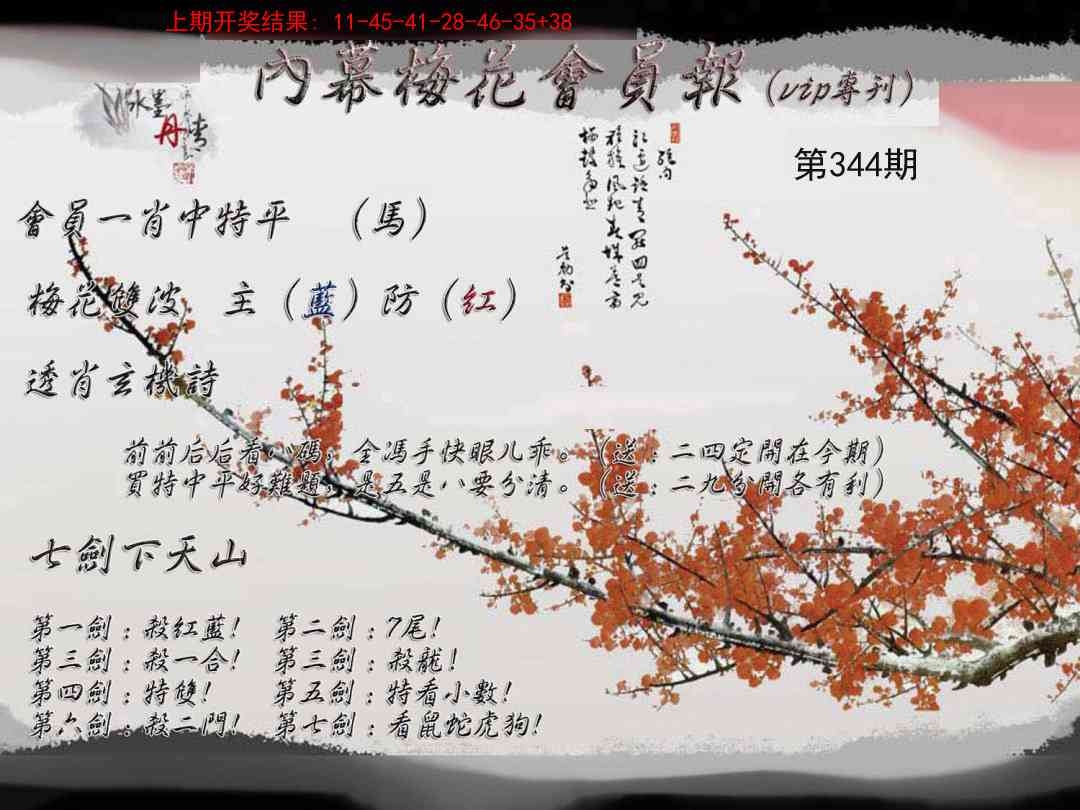 上期开奖结果：11-45-41-28-46-35+38
內幕梅花會員報（vip專刊）
水墨丹青
第344期
會員一肖中特平 （馬）
梅花雙波 主（藍）防（红）
透肖玄機詩
前前后后看八碼，全馮手快眼儿乖。（送：二四定開在今期）
買特中平好難題，是五是八要分清。（送：二九分開各有利）
七劍下天山
第一劍：殺红藍！ 第二劍：7尾！
第三劍：殺一合！ 第三劍：殺龍！
第四劍：特雙！ 第五劍：特看小數！
第六劍：殺二門！ 第七劍：看鼠蛇虎狗！